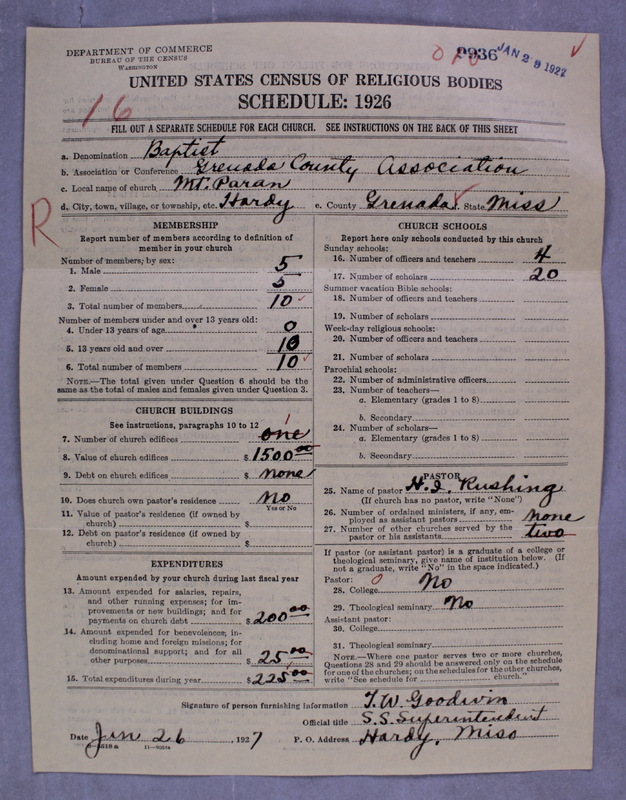 DEPARTMENT OF COMMERCE
BUREAU OF THE CENSUS
WASHINGTON
0936 JAN 29 1927
UNITED STATES CENSUS OF RELIGIOUS BODIES
SCHEDULE: 1926
16
FILL OUT A SEPARATE SCHEDULE FOR EACH CHURCH. SEE INSTRUCTIONS ON THE BACK OF THIS SHEET
a. Denomination Baptist
b. Association or Conference Grenada County Association
c. Local name of church Mt. Paran
d. City, town, village, or township, etc. Hardy e. County Grenada f. State Miss
R
MEMBERSHIP
Report number of members according to definition of member in your church
Number of members, by sex:
1. Male 5
2. Female 5
3. Total number of members 10
Number of members under and over 13 years old:
4. Under 13 years of age 0
5. 13 years old and over 10
6. Total number of members 10
NOTE.—The total given under Question 6 should be the same as the total of males and females given under Question 3.
CHURCH BUILDINGS
See instructions, paragraphs 10 to 12
7. Number of church edifices one 1
8. Value of church edifices $1500 00
9. Debt on church edifices $ none
10. Does church own pastor's residence No
Yes or No
11. Value of pastor's residence (if owned by church) $
12. Debt on pastor's residence (if owned by church) $
EXPENDITURES
Amount expended by your church during last fiscal year
13. Amount expended for salaries, repairs, and other running expenses; for improvements or new buildings; and for payments on church debt $200 00
14. Amount expended for benevolences, including home and foreign missions; for denominational support; and for all other purposes $25 00
15. Total expenditures during year $225 00
CHURCH SCHOOLS
Report here only schools conducted by this church
Sunday schools:
16. Number of officers and teachers 4
17. Number of scholars 20
Summer vacation Bible schools:
18. Number of officers and teachers
19. Number of scholars
Week-day religious schools:
20. Number of officers and teachers
21. Number of scholars
Parochial schools:
22. Number of administrative officers
23. Number of teachers—
a. Elementary (grades 1 to 8)
b. Secondary
24. Number of scholars—
a. Elementary (grades 1 to 8)
b. Secondary
PASTOR
25. Name of pastor H. I. Rushing
(If church has no pastor, write "None")
26. Number of ordained ministers, if any, employed as assistant pastors none
27. Number of other churches served by the pastor or his assistants two
If pastor (or assistant pastor) is a graduate of a college or theological seminary, give name of institution below. (If not a graduate, write "No" in the space indicated.)
Pastor: 0
28. College No
29. Theological seminary No
Assistant pastor:
30. College
31. Theological seminary
NOTE.—Where one pastor serves two or more churches, Questions 28 and 29 should be answered only on the schedule for one of the churches; on the schedules for the other churches, write "See schedule for church."
Signature of person furnishing information T. W. Goodwin
Official title S.S. Superintendent
Date Jan 26, 1927 P. O. Address Hardy, Miss